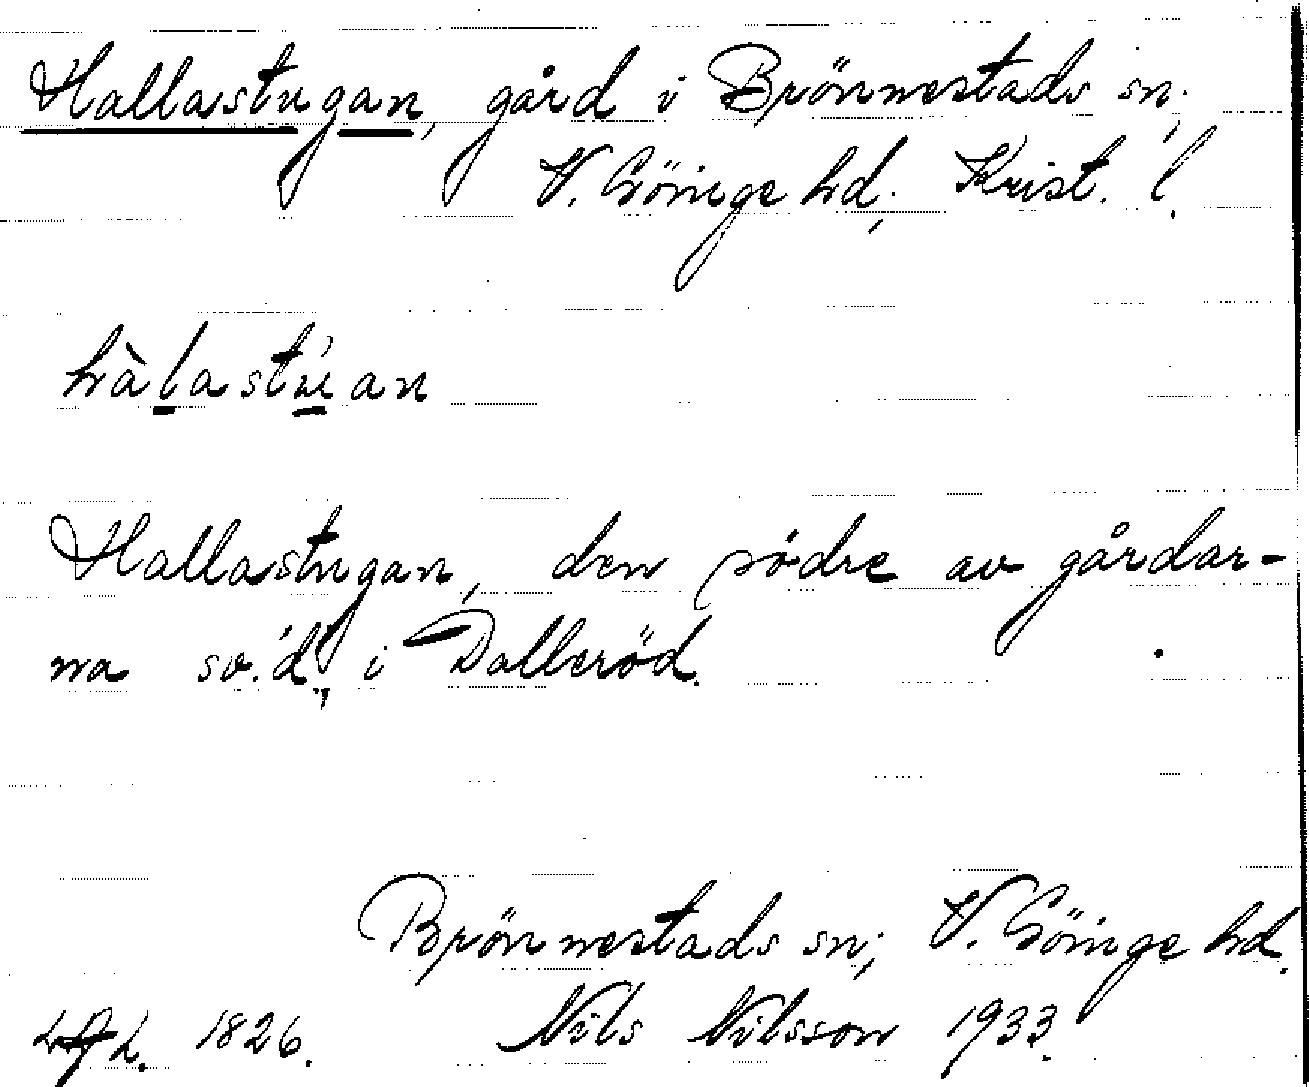 Hallastugan, gård i Brönnestads sn,
V. Göinge hd, Krist. l.
hàlastúan
Hallastugan, den södre av gårdar-
na s.v.d., i Dalleröd.
Brönnestads sn, V. Göinge hd.
1826. Nils Nilsson 1933.